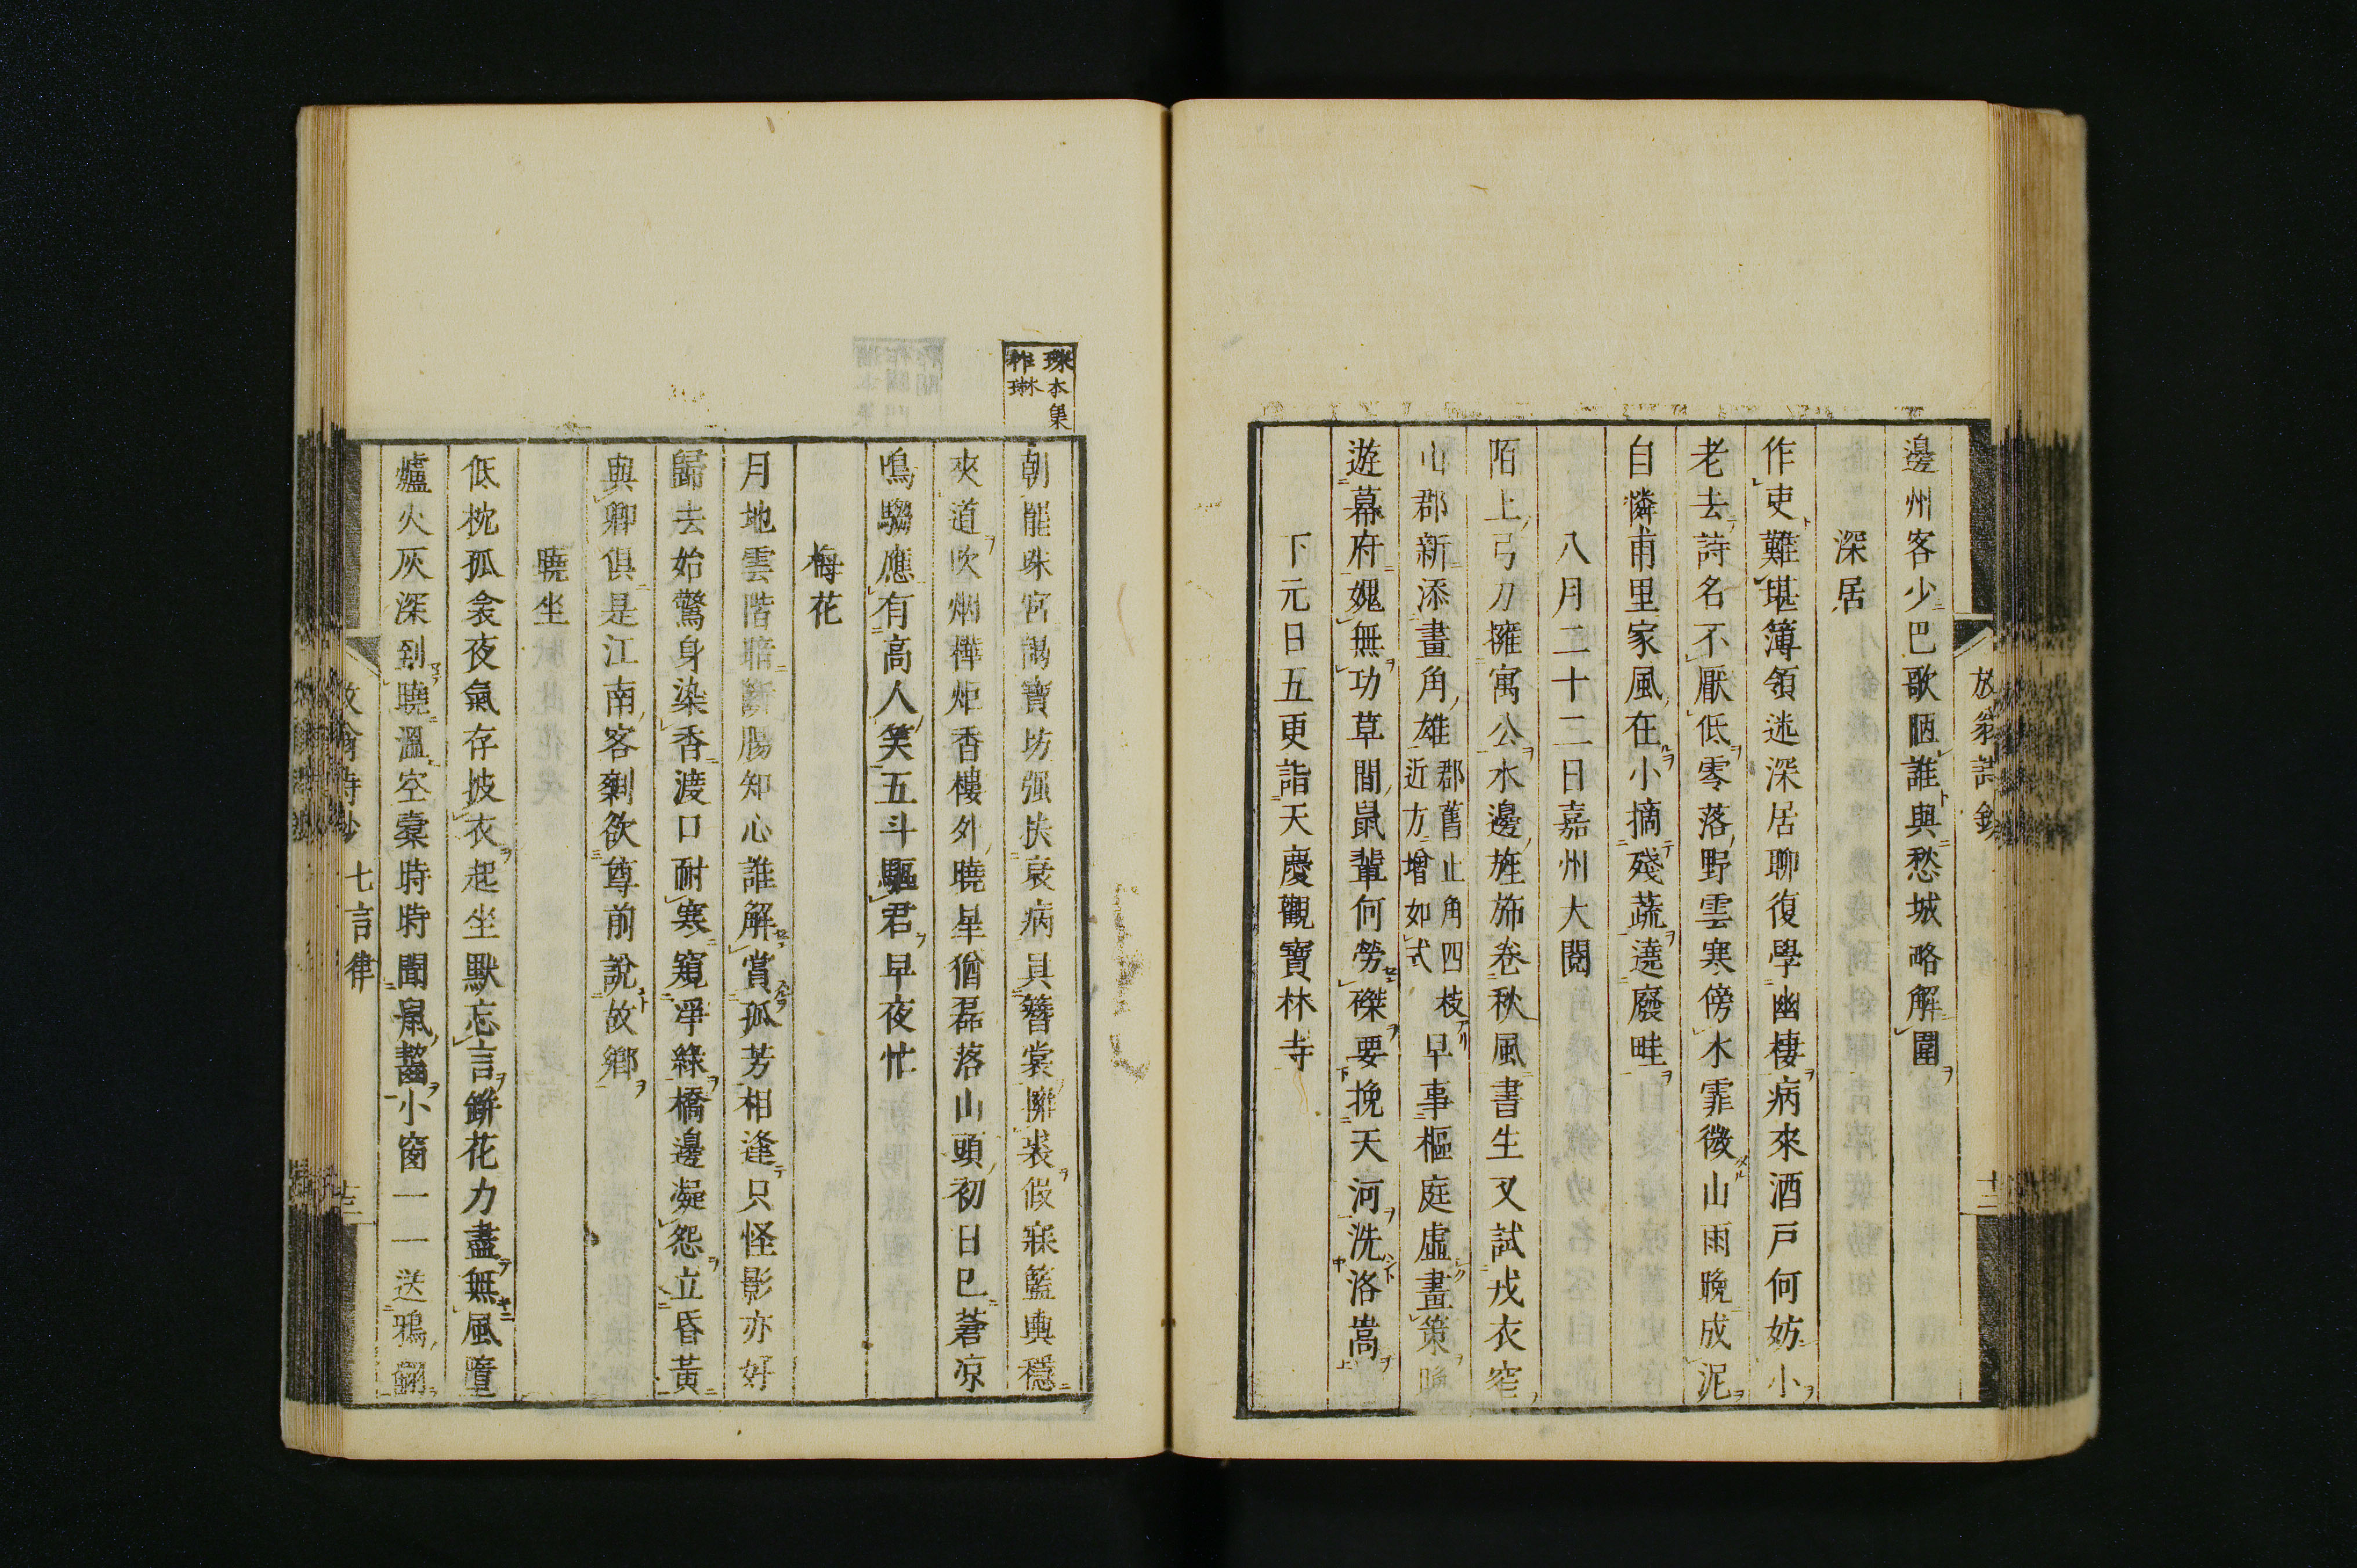 放翁詩鈔
十二
邊州客少巴歌陋誰與愁城略解圍
深居
作吏難堪簿領迷深居聊復學幽棲病來酒戸何妨小
老去詩名不厭低零落野雲寒傍水霏微山雨晚成泥
自憐甫里家風在小摘殘蔬遶廢畦
八月二十二日嘉州大閱
陌上弓刀擁寓公水邊旌斾卷秋風書生又試戎衣窄
山郡新添畫角雄郡舊止角四枝近方增如式早事樞庭虛畫策晚
遊幕府媿無功草間鼠輩何勞磔要挽天河洗洛嵩
下元日五更詣天慶觀寶林寺
琜本集
作琳
朝罷珠宮謁寶坊强扶衰病具簪裳擁裘假寐籃輿穩
夾道吹烟樺炬香樓外曉星猶磊落山頭初日已蒼凉
鳴騶應有高人笑五斗驅君早夜忙
梅花
月地雲階暗斷腸知心誰解賞孤芳相逢只怪影亦好
歸去始驚身染香渡口耐寒窺凈綠橋邊凝怨立昏黃
與卿俱是江南客剩欲尊前說故鄉
曉坐
低枕孤衾夜氣存披衣起坐默忘言缾花力盡無風墮
爐火灰深到曉溫空橐時時聞鼠齧小窗一一送鴉翻
放翁詩鈔 七言律